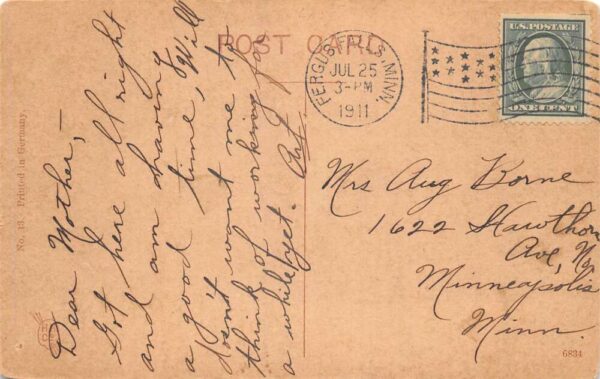 POST CARD
Dear Mother,—
Got here all right
and am having
a good time, Will
doesn't want me to
think of working for
a while yet. Art.
No. 13. Printed in Germany.
FERGUS FALLS, MINN.
JUL 25
3-PM
1911
U.S. POSTAGE
ONE CENT
Mrs Aug Borne
1622 Hawthorn
Ave, No
Minneapolis
Minn.
6834